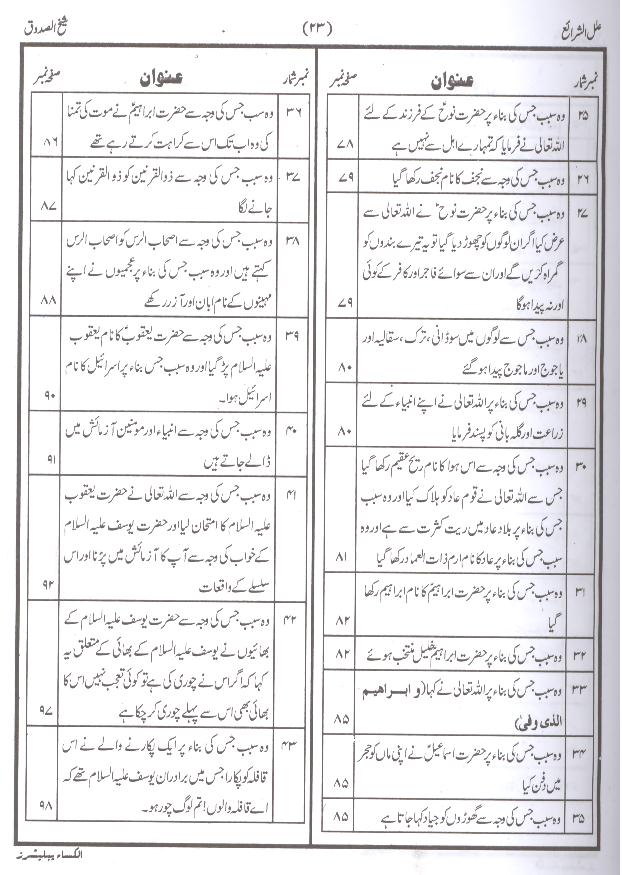 علل الشرائع (۲۳) شیخ الصدوق
نمبر شمار عنوان صفحہ نمبر
۲۵ وہ سبب جس کی بناء پر حضرت نوحؑ کے فرزند کے لئے
اللہ تعالیٰ نے فرمایا کہ تمہارے اہل سے نہیں ہے ۷۸
۲۶ وہ سبب جس کی وجہ سے نجف کا نام نجف رکھا گیا ۷۹
۲۷ وہ سبب جس کی بناء پر حضرت نوحؑ نے اللہ تعالیٰ سے
عرض کیا اگر ان لوگوں کو چھوڑ دیا گیا تو یہ تیرے بندوں کو
گمراہ کریں گے اور ان سے سوائے فاجر اور کافر کے کوئی
اور نہ پیدا ہوگا ۷۹
۲۸ وہ سبب جس سے لوگوں میں سوڈانی، ترک، سقالیہ اور
یاجوج اور ماجوج پیدا ہو گئے ۸۰
۲۹ وہ سبب جس کی بناء پر اللہ تعالیٰ نے اپنے انبیاء کے لئے
زراعت اور گلہ بانی کو پسند فرمایا ۸۰
۳۰ وہ سبب جس کی وجہ سے اس ہوا کا نام ریح عقیم رکھا گیا
جس سے اللہ تعالیٰ نے قوم عاد کو ہلاک کیا اور وہ سبب
جس کی بناء پر بلاد عاد میں ریت کثرت سے ہے اور وہ
سبب جس کی بناء پر عاد کا نام ارم ذات العماد رکھا گیا ۸۱
۳۱ وہ سبب جس کی بناء پر حضرت ابراہیمؑ کا نام ابراہیم رکھا
گیا ۸۲
۳۲ وہ سبب جس کی بناء پر حضرت ابراہیمؑ خلیل منتخب ہوئے ۸۲
۳۳ وہ سبب جس کی بناء پر اللہ تعالیٰ نے کہا (و ابراھیم
الذی وفی) ۸۵
۳۴ وہ سبب جس کی بناء پر حضرت اسماعیلؑ نے اپنی ماں کو حجر
میں دفن کیا ۸۵
۳۵ وہ سبب جس کی وجہ سے گھوڑوں کو جیاد کہا جاتا ہے ۸۵
نمبر شمار عنوان صفحہ نمبر
۳۶ وہ سبب جس کی وجہ سے حضرت ابراہیمؑ نے موت کی تمنا
کی وہ اب تک اس سے کراہت کرتے رہے تھے ۸۶
۳۷ وہ سبب جس کی وجہ سے ذوالقرنین کو ذوالقرنین کہا
جانے لگا ۸۷
۳۸ وہ سبب جس کی وجہ سے اصحاب الرس کو اصحاب الرس
کہتے ہیں اور وہ سبب جس کی بناء پر عجمیوں نے اپنے
مہینوں کے نام ابان اور آزر رکھے ۸۸
۳۹ وہ سبب جس کی وجہ سے حضرت یعقوبؑ کا نام یعقوب
علیہ السلام پڑ گیا اور وہ سبب جس بناء پر اسرائیل کا نام
اسرائیل ہوا۔ ۹۰
۴۰ وہ سبب جس کی وجہ سے انبیاء اور مومنین آزمائش میں
ڈالے جاتے ہیں ۹۱
۴۱ وہ سبب جس کی وجہ سے اللہ تعالیٰ نے حضرت یعقوب
علیہ السلام کا امتحان لیا اور حضرت یوسف علیہ السلام
کے خواب کی وجہ سے آپ کا آزمائش میں پڑنا اور اس
سلسلے کے واقعات ۹۲
۴۲ وہ سبب جس کی وجہ سے حضرت یوسف علیہ السلام کے
بھائیوں نے یوسف علیہ السلام کے بھائی کے متعلق یہ
کہا کہ اگر اس نے چوری کی ہے تو کوئی تعجب نہیں اس کا
بھائی بھی اس سے پہلے چوری کر چکا ہے ۹۷
۴۳ وہ سبب جس کی بناء پر ایک پکارنے والے نے اس
قافلہ کو پکارا جس میں برادران یوسف علیہ السلام تھے کہ
اے قافلہ والوں! تم لوگ چور ہو۔ ۹۸
الکساء پبلیشرز